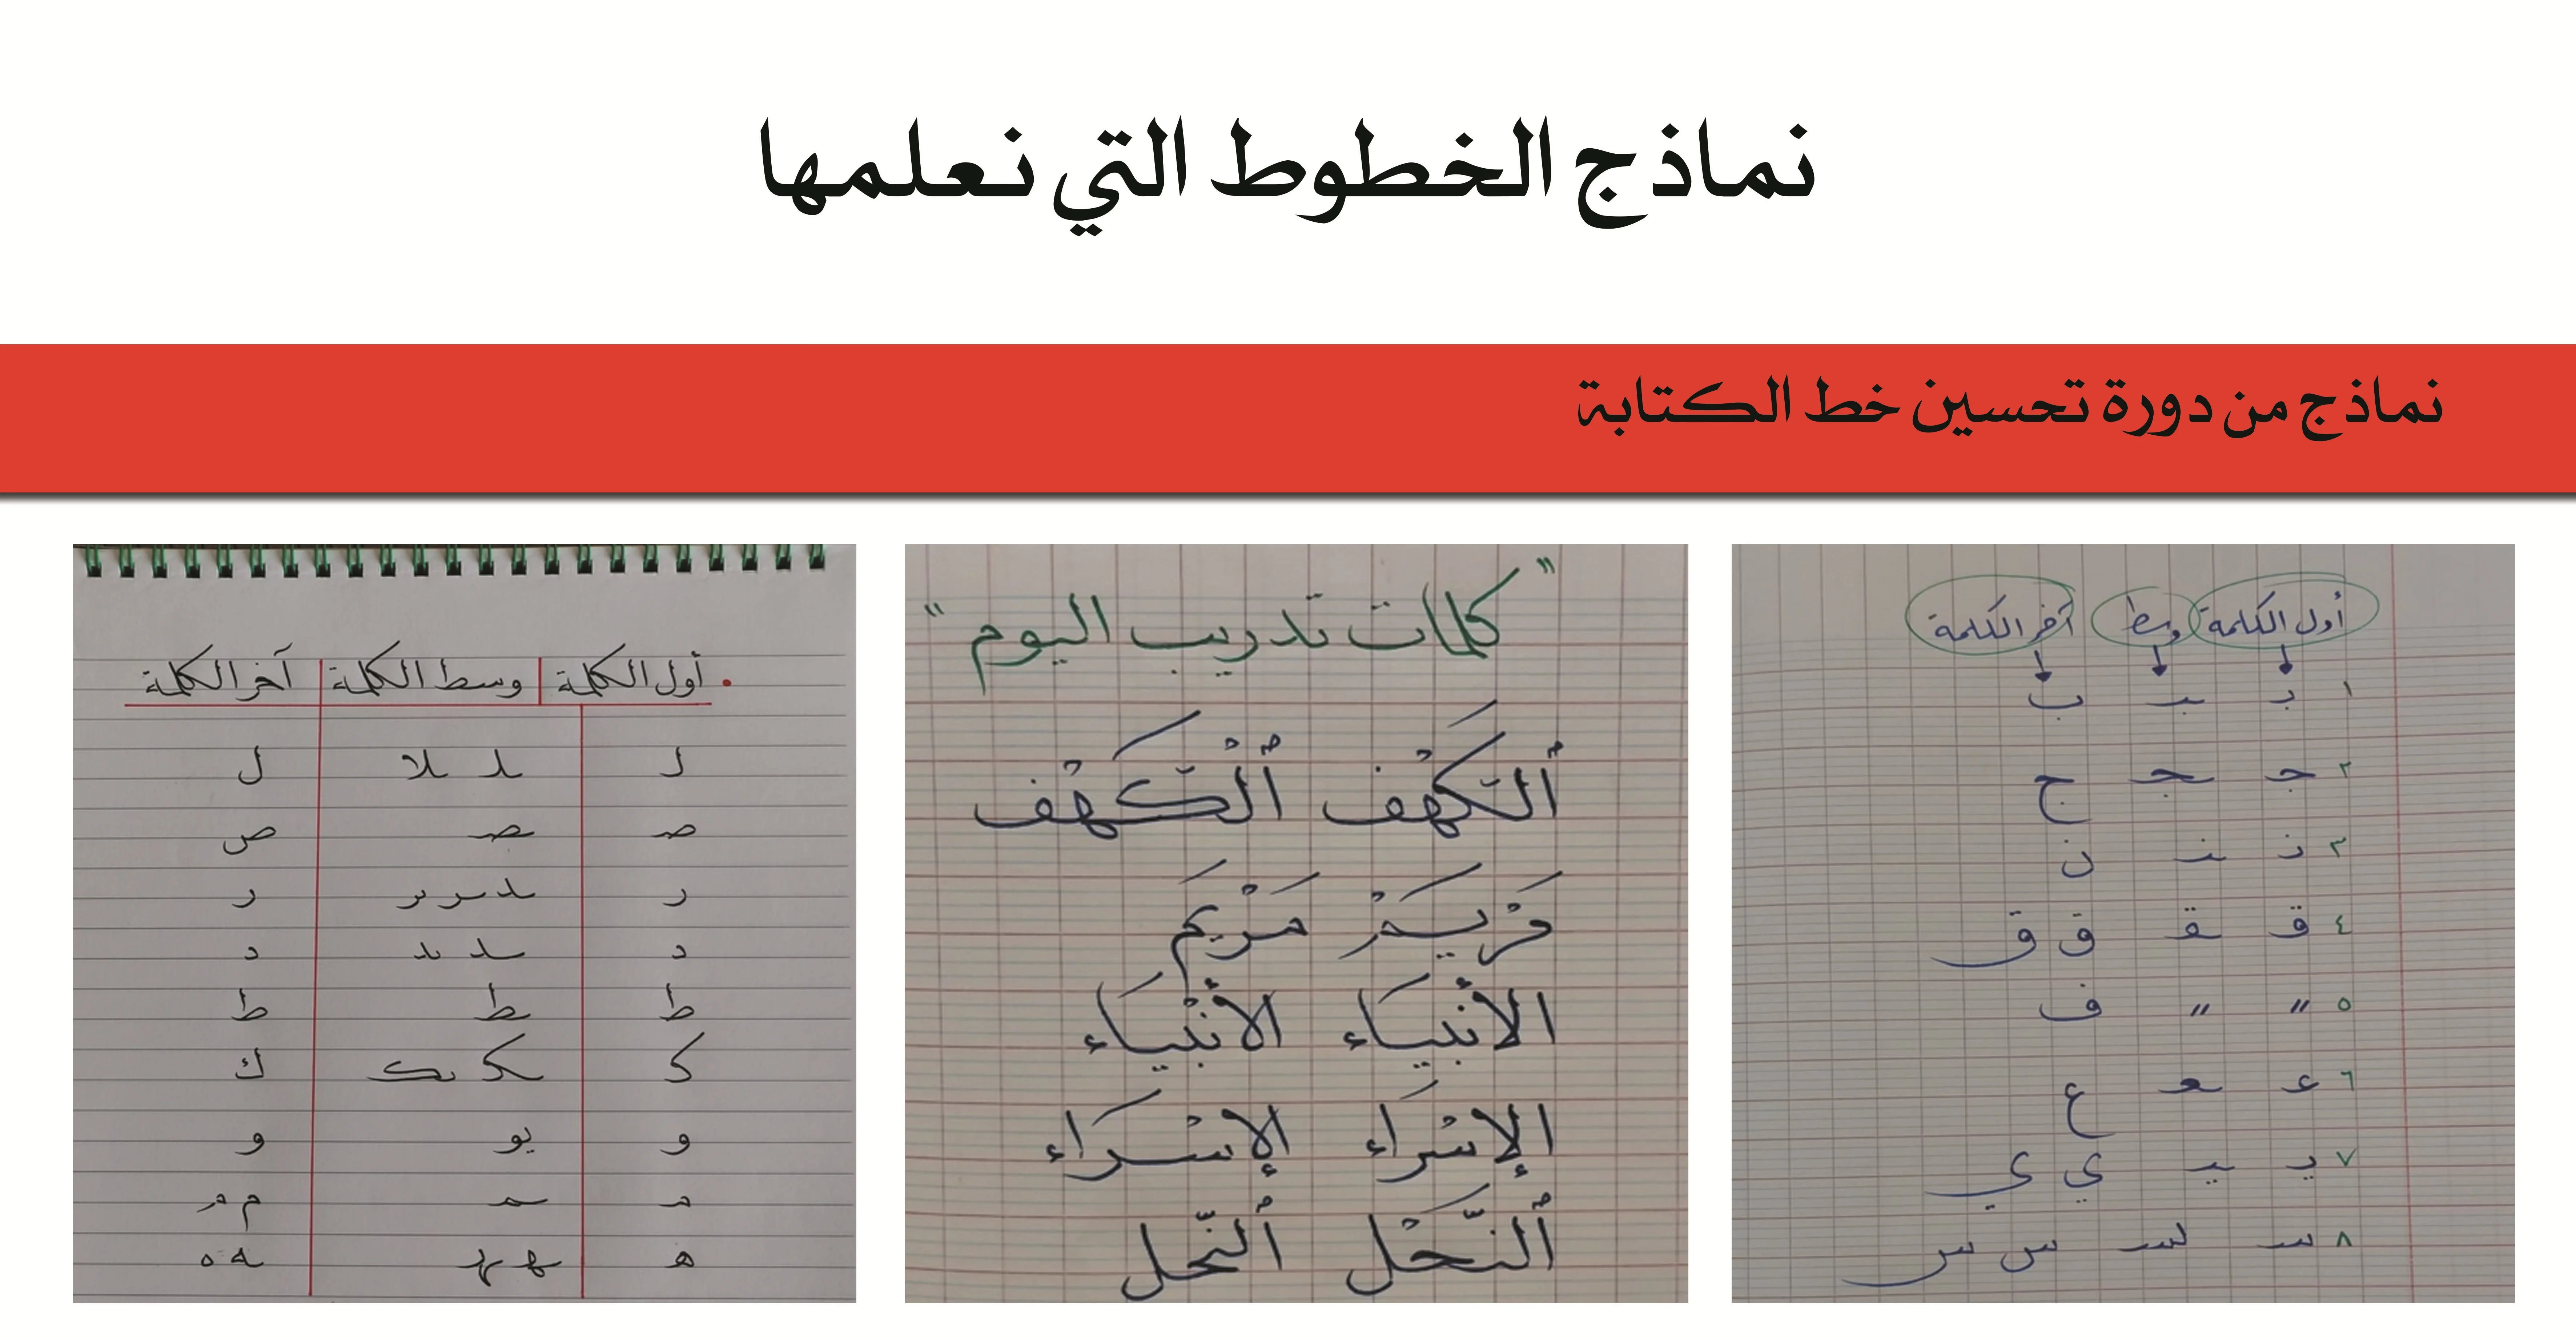 نماذج الخطوط التي نعلمها
نماذج من دورة تحسين خط الكتابة
أول الكلمة وسط آخر الكلمة
١ بـ ـبـ ب
٢ جـ ـجـ ج
٣ نـ ـنـ ن
٤ قـ ـقـ ق ق
٥ " " ف
٦ عـ ـعـ ع
٧ يـ ـيـ ي ي
٨ سـ ـسـ س س
"كلمات تدريب اليوم"
ٱلْكَهْف ٱلْكَهْف
مَرْيَم مَرْيَم
الأنْبيَاء الأنْبيَاء
الإسْرَاء الإسْرَاء
ٱلنَّحْل ٱلنَّحْل
• أول الكلمة | وسط الكلمة | آخر الكلمة
لـ ـلـ ـلا ل
صـ ـصـ ص
ر ـر ـر ـر ر
د ـد ـد د
ط ـط ط
كـ ـكـ ـكـ ك
و ـو و
مـ ـمـ م م
هـ ـهـ ـهـ ـه ه